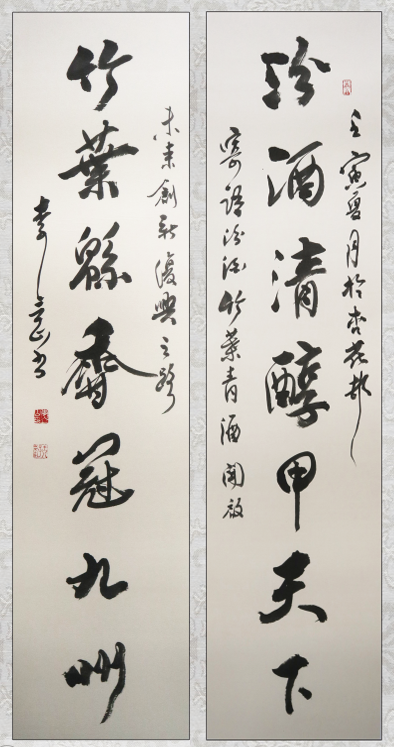 壬寅夏月於杏花村
汾酒清醇甲天下
寄語汾酒竹葉青酒開啟
未來創新復興之路
竹葉綿香冠九州
李